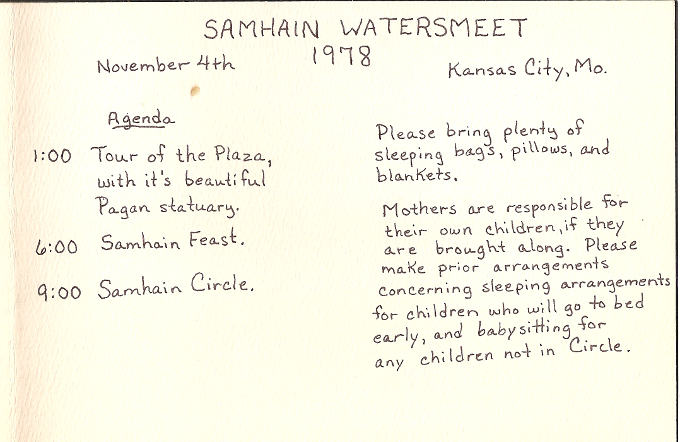 SAMHAIN WATERSMEET
1978
November 4th
Kansas City, Mo.
Agenda
1:00 Tour of the Plaza,
with it's beautiful
Pagan statuary.
6:00 Samhain Feast.
9:00 Samhain Circle.
Please bring plenty of
sleeping bags, pillows, and
blankets.
Mothers are responsible for
their own children, if they
are brought along. Please
make prior arrangements
concerning sleeping arrangements
for children who will go to bed
early, and babysitting for
any children not in Circle.